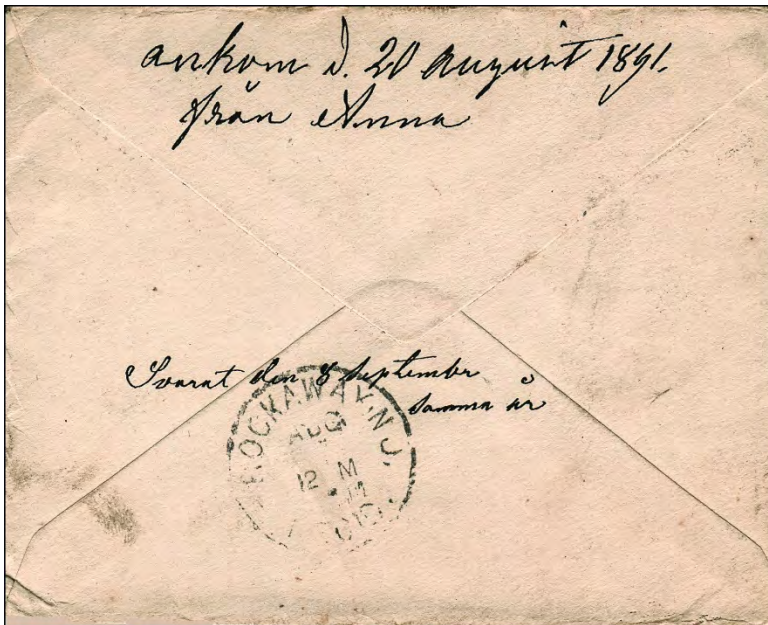 ankom d. 20 august 1891.
från Anna
Svarat den 8 september
samma år
ROCKAWAY, N.J.
AUG
12 M